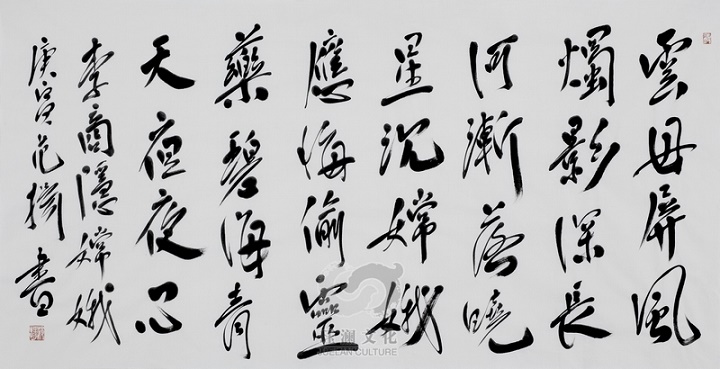 雲母屏風
燭影深長
河漸落曉
星沉嫦娥
應悔偷靈
藥碧海青
天夜夜心
李商隱嫦娥
庚寅范擒書
澜文化
CELAN CULTURE